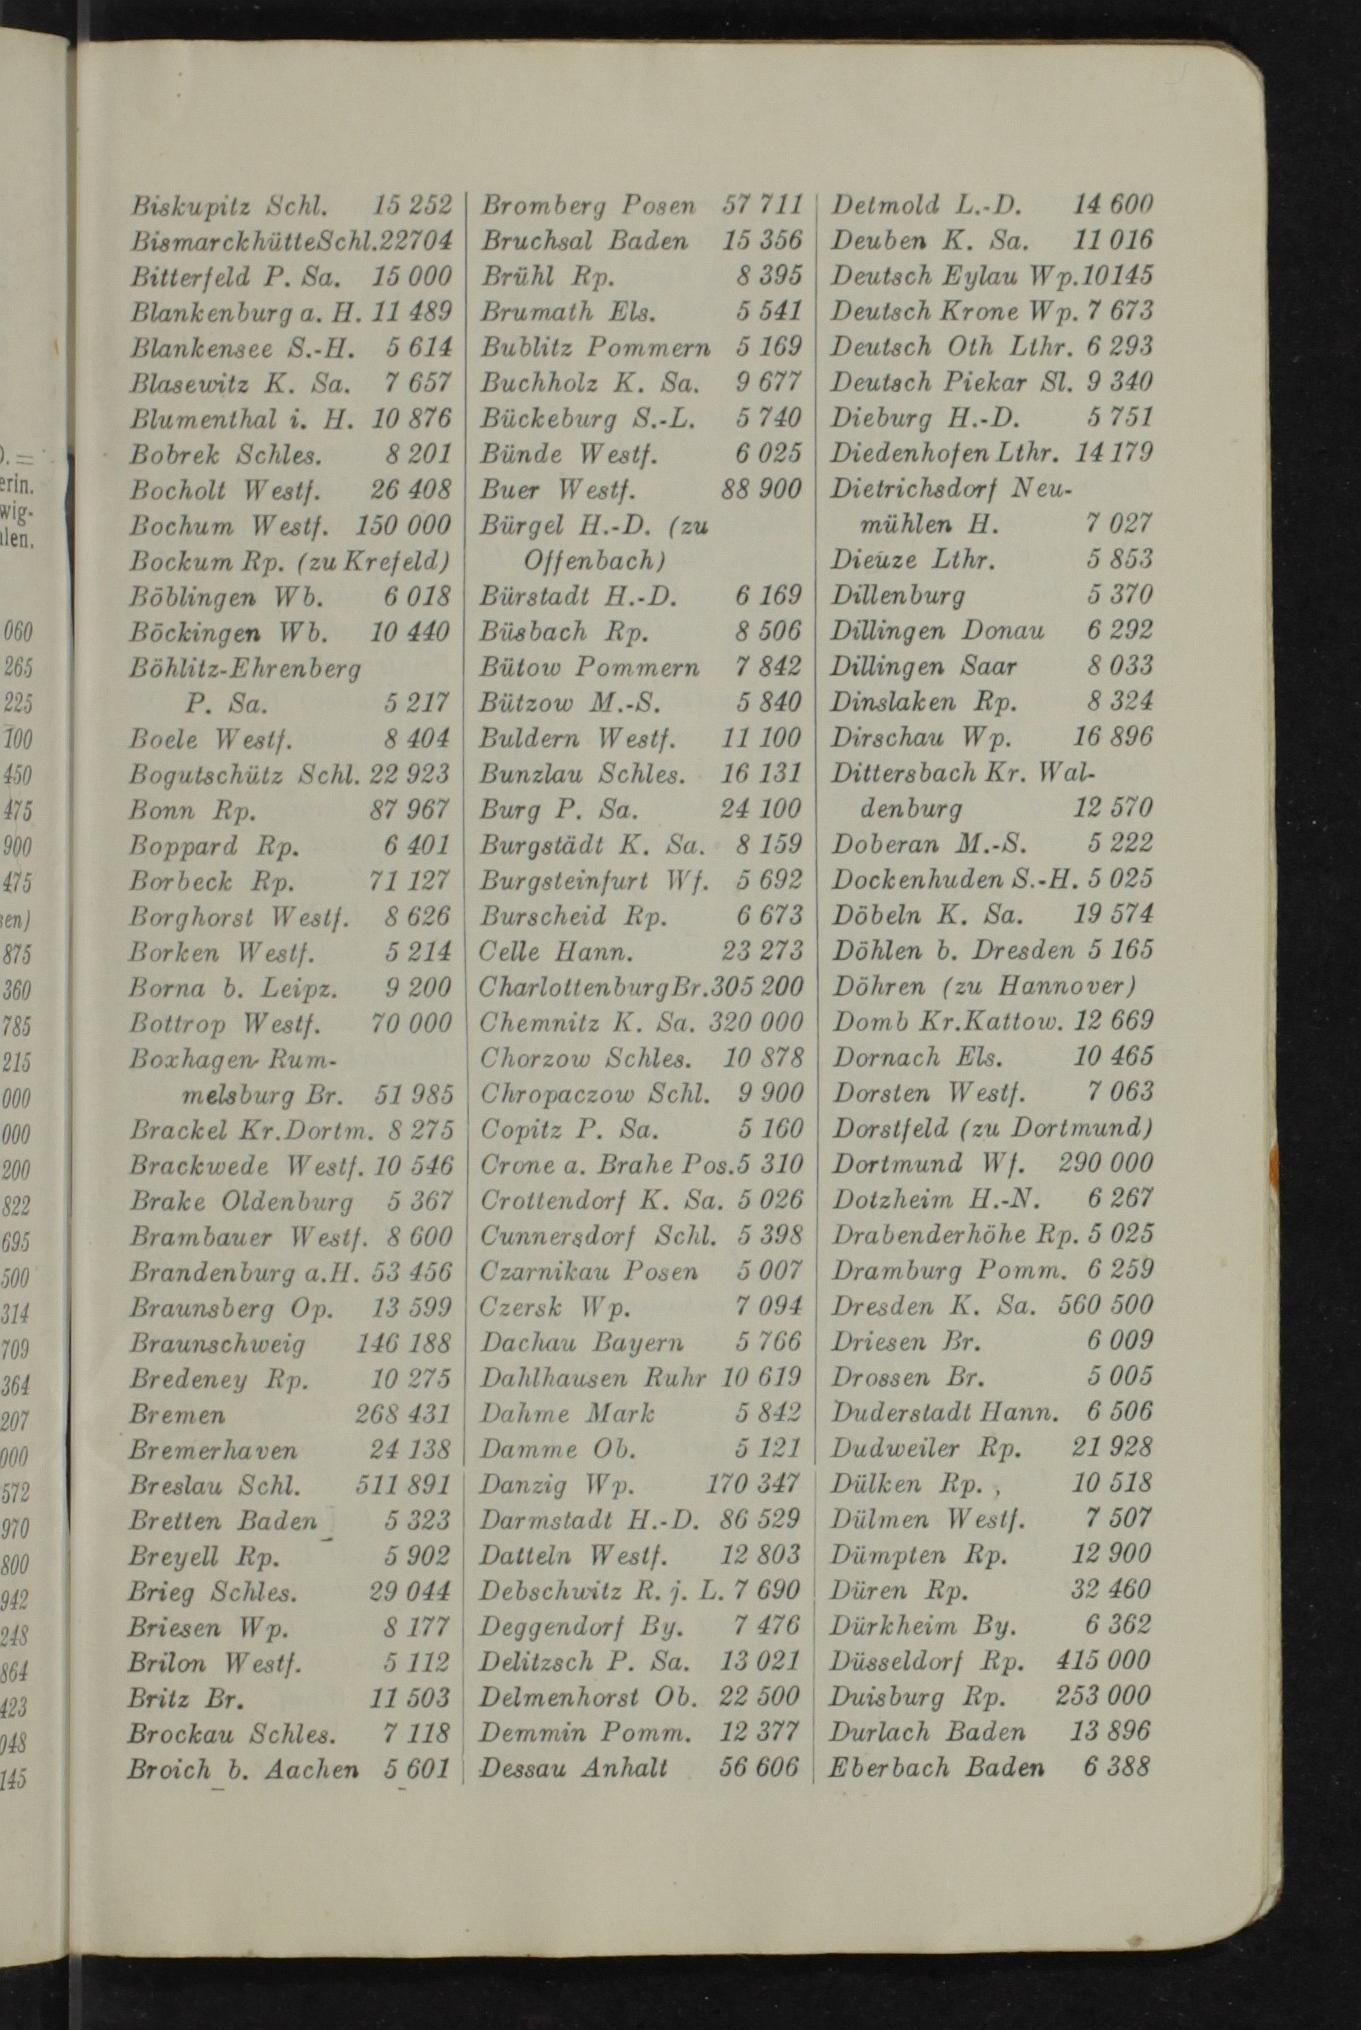 Biskupitz Schl. 15 252
BismarckhütteSchl.22704
Bitterfeld P. Sa. 15 000
Blankenburg a. H. 11 489
Blankensee S.-H. 5 614
Blasewitz K. Sa. 7 657
Blumenthal i. H. 10 876
Bobrek Schles. 8 201
Bocholt Westf. 26 408
Bochum Westf. 150 000
Bockum Rp. (zu Krefeld)
Böblingen Wb. 6 018
Böckingen Wb. 10 440
Böhlitz-Ehrenberg
P. Sa. 5 217
Boele Westf. 8 404
Bogutschütz Schl. 22 923
Bonn Rp. 87 967
Boppard Rp. 6 401
Borbeck Rp. 71 127
Borghorst Westf. 8 626
Borken Westf. 5 214
Borna b. Leipz. 9 200
Bottrop Westf. 70 000
Boxhagen-Rum-
melsburg Br. 51 985
Brackel Kr.Dortm. 8 275
Brackwede Westf. 10 546
Brake Oldenburg 5 367
Brambauer Westf. 8 600
Brandenburg a.H. 53 456
Braunsberg Op. 13 599
Braunschweig 146 188
Bredeney Rp. 10 275
Bremen 268 431
Bremerhaven 24 138
Breslau Schl. 511 891
Bretten Baden 5 323
Breyell Rp. 5 902
Brieg Schles. 29 044
Briesen Wp. 8 177
Brilon Westf. 5 112
Britz Br. 11 503
Brockau Schles. 7 118
Broich b. Aachen 5 601
Bromberg Posen 57 711
Bruchsal Baden 15 356
Brühl Rp. 8 395
Brumath Els. 5 541
Bublitz Pommern 5 169
Buchholz K. Sa. 9 677
Bückeburg S.-L. 5 740
Bünde Westf. 6 025
Buer Westf. 88 900
Bürgel H.-D. (zu
Offenbach)
Bürstadt H.-D. 6 169
Büsbach Rp. 8 506
Bütow Pommern 7 842
Bützow M.-S. 5 840
Buldern Westf. 11 100
Bunzlau Schles. 16 131
Burg P. Sa. 24 100
Burgstädt K. Sa. 8 159
Burgsteinfurt Wf. 5 692
Burscheid Rp. 6 673
Celle Hann. 23 273
CharlottenburgBr.305 200
Chemnitz K. Sa. 320 000
Chorzow Schles. 10 878
Chropaczow Schl. 9 900
Copitz P. Sa. 5 160
Crone a. Brahe Pos.5 310
Crottendorf K. Sa. 5 026
Cunnersdorf Schl. 5 398
Czarnikau Posen 5 007
Czersk Wp. 7 094
Dachau Bayern 5 766
Dahlhausen Ruhr 10 619
Dahme Mark 5 842
Damme Ob. 5 121
Danzig Wp. 170 347
Darmstadt H.-D. 86 529
Datteln Westf. 12 803
Debschwitz R. j. L. 7 690
Deggendorf By. 7 476
Delitzsch P. Sa. 13 021
Delmenhorst Ob. 22 500
Demmin Pomm. 12 377
Dessau Anhalt 56 606
Detmold L.-D. 14 600
Deuben K. Sa. 11 016
Deutsch Eylau Wp.10145
Deutsch Krone Wp. 7 673
Deutsch Oth Lthr. 6 293
Deutsch Piekar Sl. 9 340
Dieburg H.-D. 5 751
Diedenhofen Lthr. 14 179
Dietrichsdorf Neu-
mühlen H. 7 027
Dieuze Lthr. 5 853
Dillenburg 5 370
Dillingen Donau 6 292
Dillingen Saar 8 033
Dinslaken Rp. 8 324
Dirschau Wp. 16 896
Dittersbach Kr. Wal-
denburg 12 570
Doberan M.-S. 5 222
Dockenhuden S.-H. 5 025
Döbeln K. Sa. 19 574
Döhlen b. Dresden 5 165
Döhren (zu Hannover)
Domb Kr.Kattow. 12 669
Dornach Els. 10 465
Dorsten Westf. 7 063
Dorstfeld (zu Dortmund)
Dortmund Wf. 290 000
Dotzheim H.-N. 6 267
Drabenderhöhe Rp. 5 025
Dramburg Pomm. 6 259
Dresden K. Sa. 560 500
Driesen Br. 6 009
Drossen Br. 5 005
Duderstadt Hann. 6 506
Dudweiler Rp. 21 928
Dülken Rp. 10 518
Dülmen Westf. 7 507
Dümpten Rp. 12 900
Düren Rp. 32 460
Dürkheim By. 6 362
Düsseldorf Rp. 415 000
Duisburg Rp. 253 000
Durlach Baden 13 896
Eberbach Baden 6 388